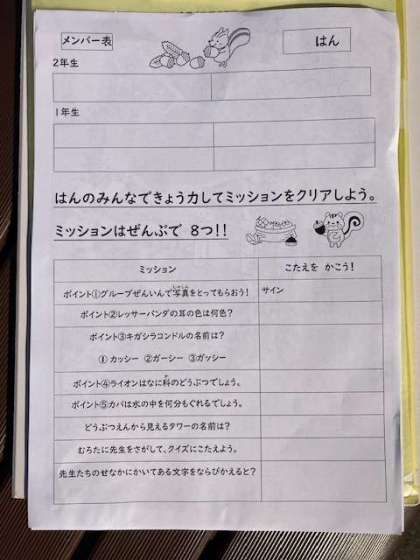 メンバー表
はん
2年生
1年生
はんのみんなできょう力してミッションをクリアしよう。
ミッションはぜんぶで 8つ!!
ミッション
こたえを かこう!
ポイント①グループぜんいんで写真をとってもらおう!
サイン
ポイント②レッサーパンダの耳の色は何色?
ポイント③キガシラコンドルの名前は?
① カッシー ②ガーシー ③ガッシー
ポイント④ライオンはなに科のどうぶつでしょう。
ポイント⑤カバは水の中を何分もぐれるでしょう。
どうぶつえんから見えるタワーの名前は?
むろたに先生をさがして、クイズにこたえよう。
先生たちのせなかにかいてある文字をならびかえると?